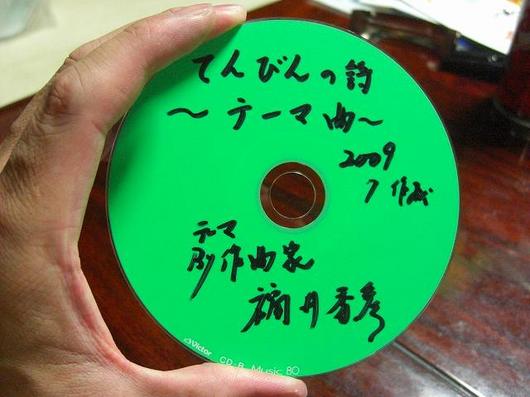 てんびんの詩
〜テーマ曲〜
2009
7 作成
テーマ
作曲家
Victor
CD-R Music 80